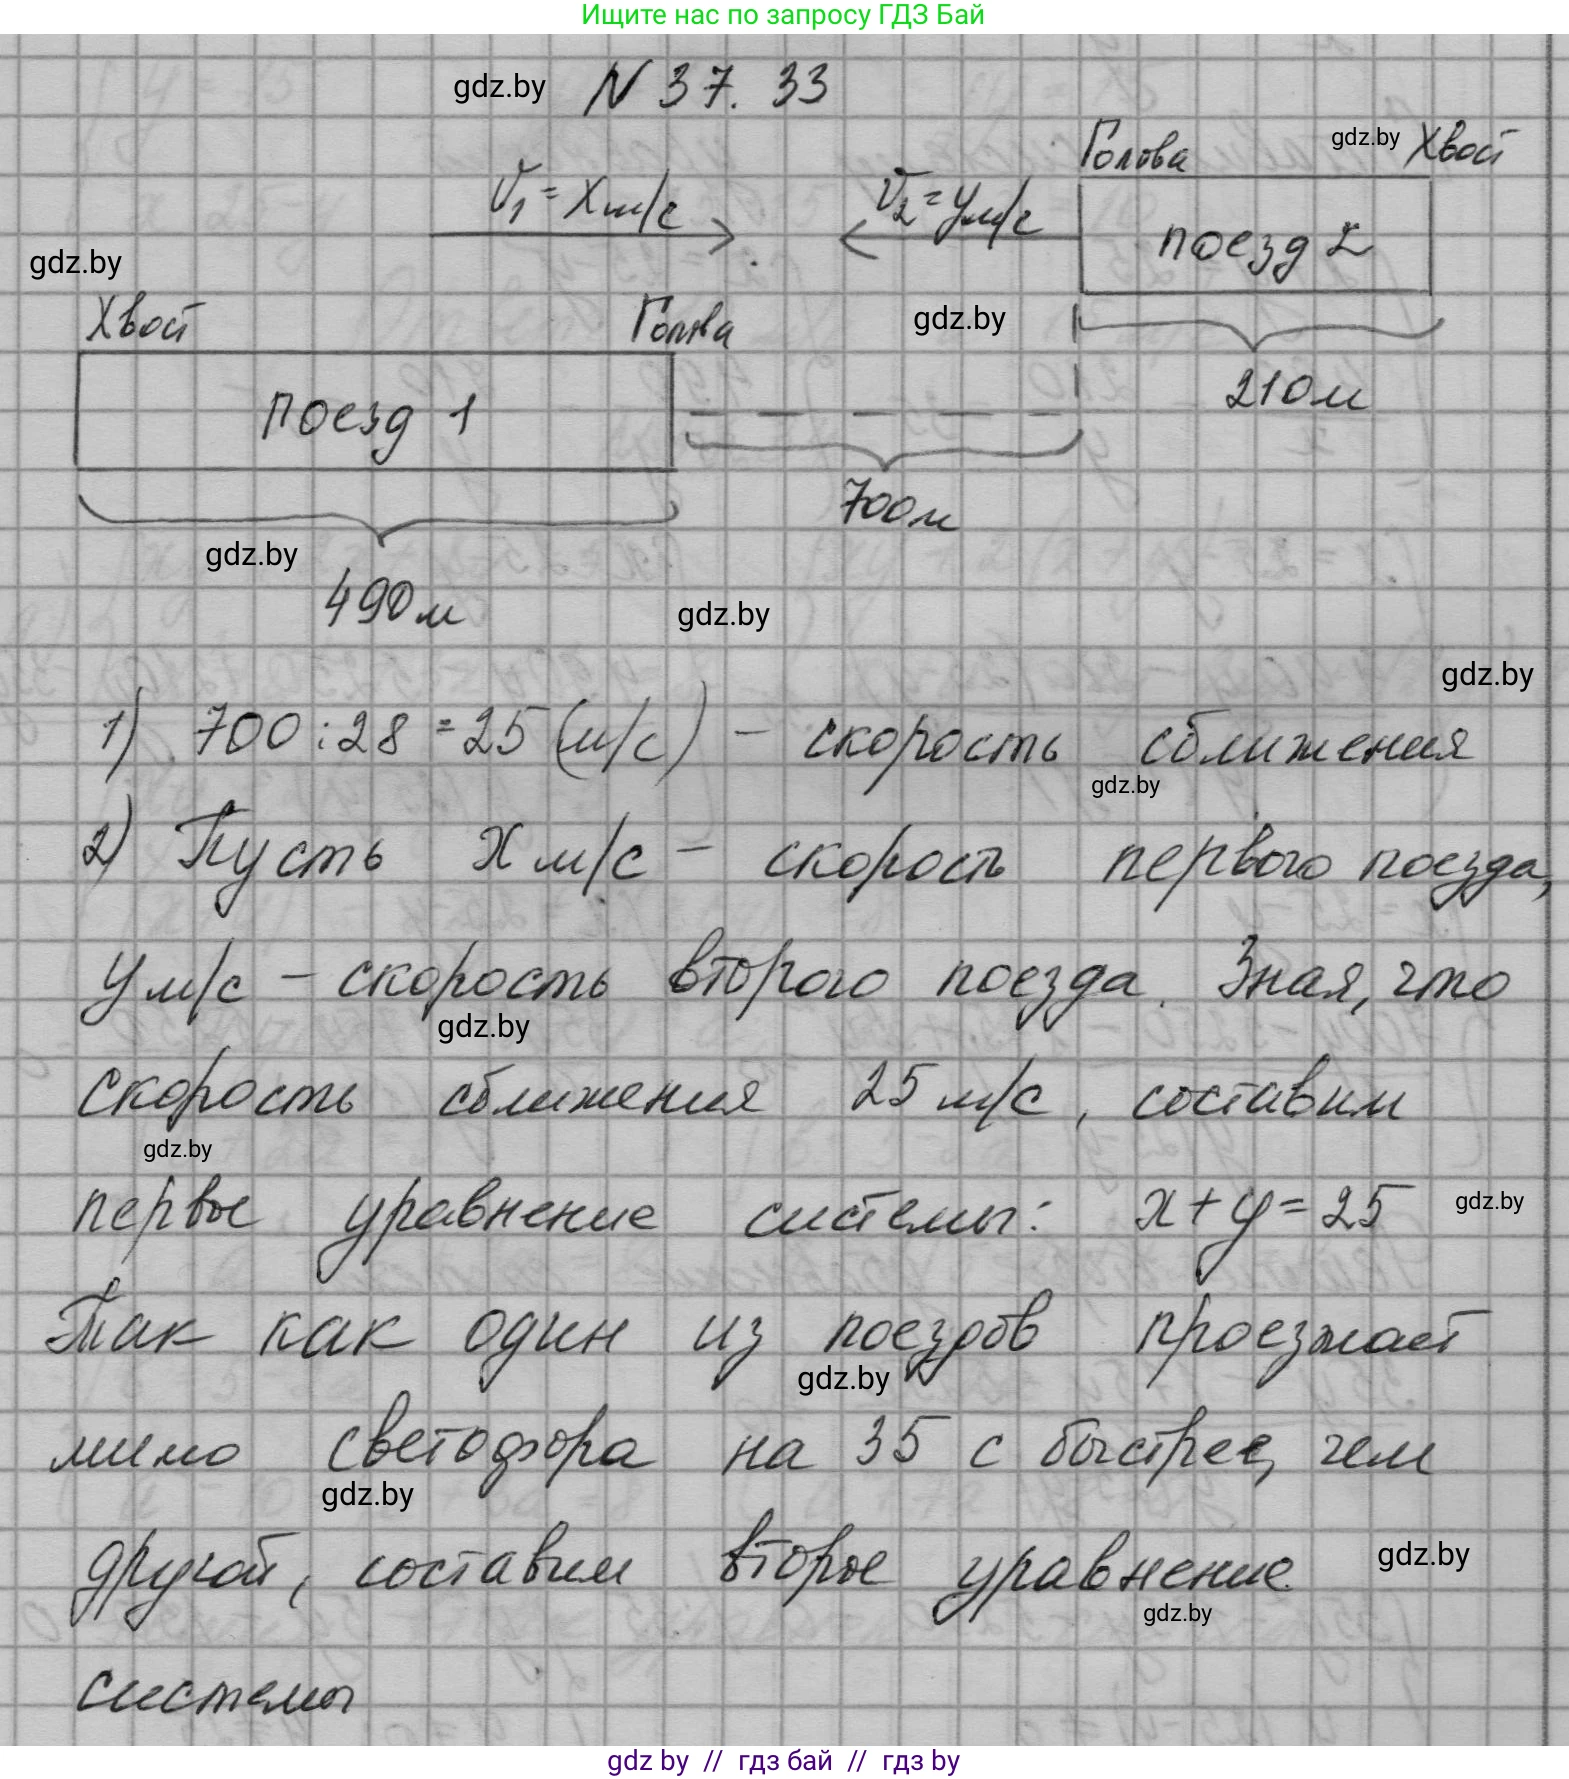 Ищите нас по запросу ГДЗ Бай
gdz.by N 37. 33
Голова gdz.by Хвост
V₁ = x м/с V₂ = y м/с
поезд 2
gdz.by
Хвост Голова gdz.by
поезд 1
210 м
700 м
gdz.by
490 м gdz.by
gdz.by
1) 700 : 28 = 25 (м/с) – скорость сближения
gdz.by
2) Пусть x м/с – скорость первого поезда,
y м/с – скорость второго поезда. Зная, что
gdz.by
скорость сближения 25 м/с, составим
gdz.by
первое уравнение системы: x + y = 25 gdz.by
Так как один из поездов проезжает
gdz.by
мимо светофора на 35 с быстрее, чем
gdz.by
другой, составим второе уравнение gdz.by
gdz.by
системы
gdz by // гдз бай // гдз by